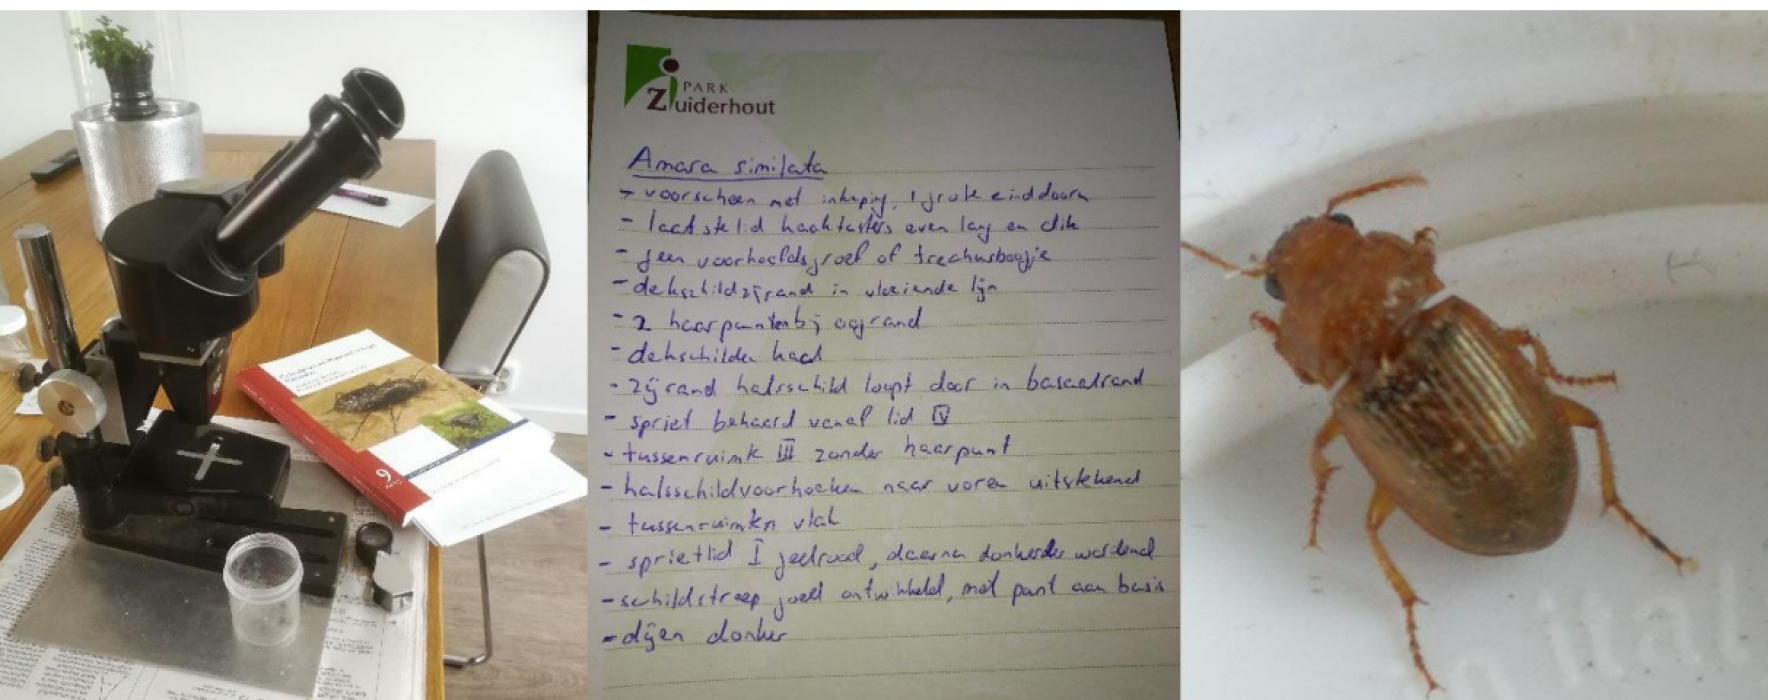 PARK
Zuiderhout
Amara similata
→ voorscheen met inkeping, 1 grote einddoorn
- laatste lid kaaktasters even lang en dik
- geen voorhoofdsgroef of trechusboogje
- dekschildzijrand in vloeiende lijn
- 2 haarpunten bij oogrand
- dekschilden kaal
- zijrand halsschild loopt door in basaalrand
- spriet behaard vanaf lid IV
- tussenruimte III zonder haarpunt
- halsschildvoorhoeken naar voren uitstekend
- tussenruimten vlak
- sprietlid I geelrood, daarna donkerder wordend
- schildstreep goed ontwikkeld, met punt aan basis
- dijen donker
9
ital